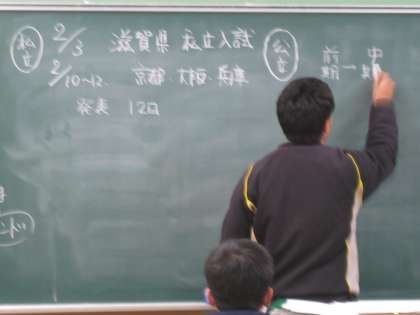 私立 2/3 滋賀県 私立入試
2/10~12 京都・大阪・兵庫
発表 12日
公立 前期→中期